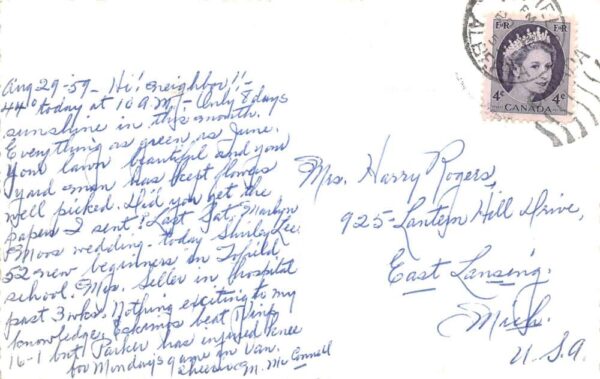 Aug 29-59- Hi! neighbor!!-
44° today at 10 A.M.- Only 8 days
sunshine in this month.
Everything as green as June.
Your lawn beautiful and your
yard man has kept flowers
well picked. Did you get the
papers I sent? Last Sat. Marilyn
Moos wedding- today Shirley Lee.
52 new beginners in Tofield
school. Mrs. Seller in hospital
past 3 wks. Nothing exciting to my
knowledge. Eskimos beat Wpg
16-1 but Parker has injured knee
for Mondays game in Van.
Cheerio M. McConnell
E R E R
4c 4c
CANADA
Mrs. Harry Rogers,
925- Lantern Hill Drive,
East Lansing.
Mich.
U.S.A.